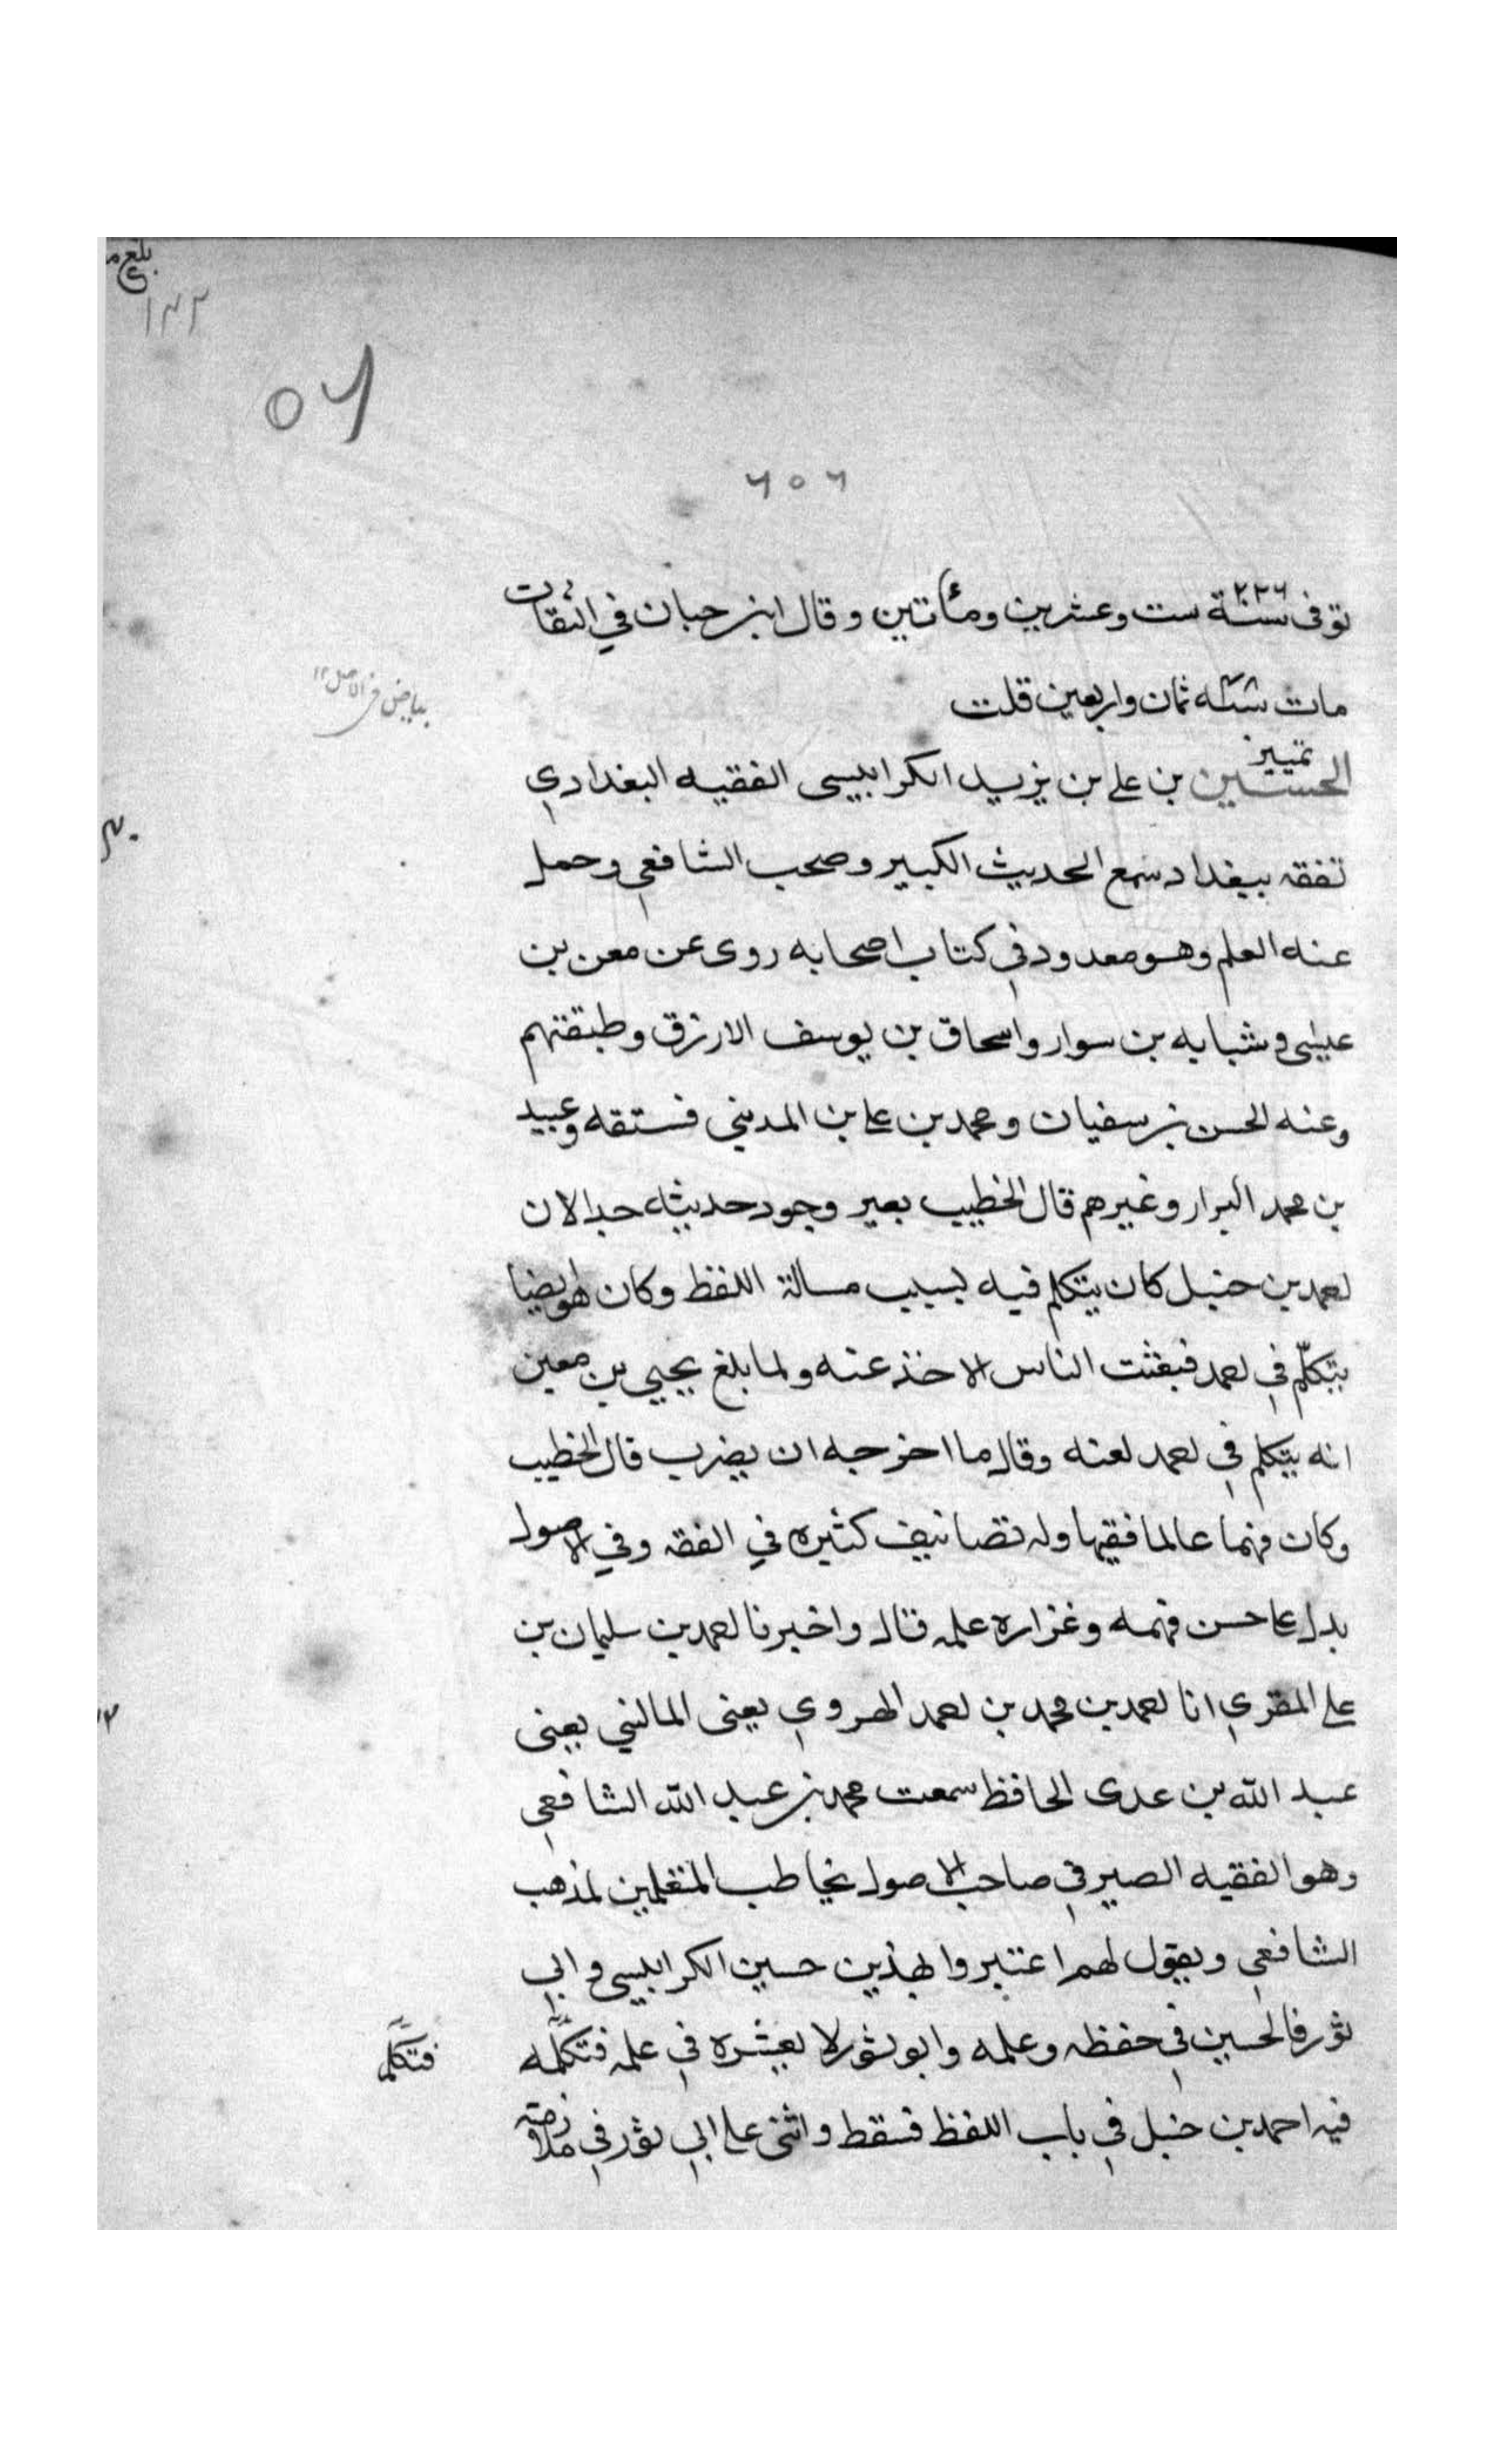 بلغ
١٢٢
٥٦
٦٥٦
٢٢٦
توفى سنة ست وعشرين ومأتين وقال ابن حبان في الثقات
مات سنة ثمان واربعين قلت
بياض في الاصل ١٢
تمييز
الحسين بن على بن يزيد الكرابيسى الفقيه البغدادي
تفقه ببغداد سمع الحديث الكبير وصحب الشافعي وحمل
عنه العلم وهو معدود في كتاب اصحابه روى عن معن بن
عيسى وشبابه بن سوار واسحاق بن يوسف الازرق وطبقتهم
وعنه الحسن بن سفيان ومحمد بن على بن المديني فستقه وعبيد
بن محمد البرار وغيرهم قال الخطيب بعير وجود حديثه جدا لان
احمد بن حنبل كان يتكلم فيه بسبب مسالة اللفظ وكان هو ايضا
يتكلّم في احمد فبغثت الناس الاخذ عنه ولما بلغ يحيي بن معين
انه يتكلم في احمد لعنه وقال ما احوجه ان يضرب قال الخطيب
وكان فهما عالما فقيها وله تصانيف كثيره في الفقه وفي الاصول
بدل على حسن فهمه وغزاره علمه قال واخبرنا احمد بن سليمان بن
على المقري انا احمد بن محمد بن احمد الهروي يعنى الماليني يعنى
عبد الله بن عدى الحافظ سمعت محمد بن عبد الله الشافعي
وهو الفقيه الصيرفي صاحب الاصول يخاطب المتعلمين لمذهب
الشافعي ويقول لهم اعتبروا بهذين حسين الكرابيسي وابي
ثور فالحسين في حفظه وعلمه وابو ثور لا يعشره في علمه فتكلّمه
فتكلم
فيه احمد بن حنبل في باب اللفظ فسقط واثنى على ابي ثور في ملازمته